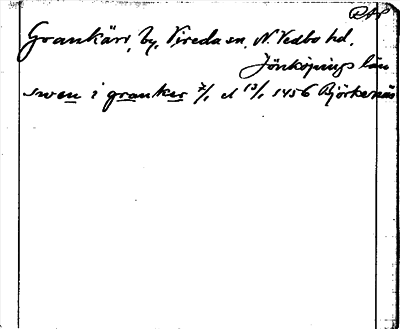 RAP
Grankärr, by, Vireda sn, N. Vedbo hd,
Jönköpings län
swen i granker 7/1 el 13/1 1456 Björkenäs